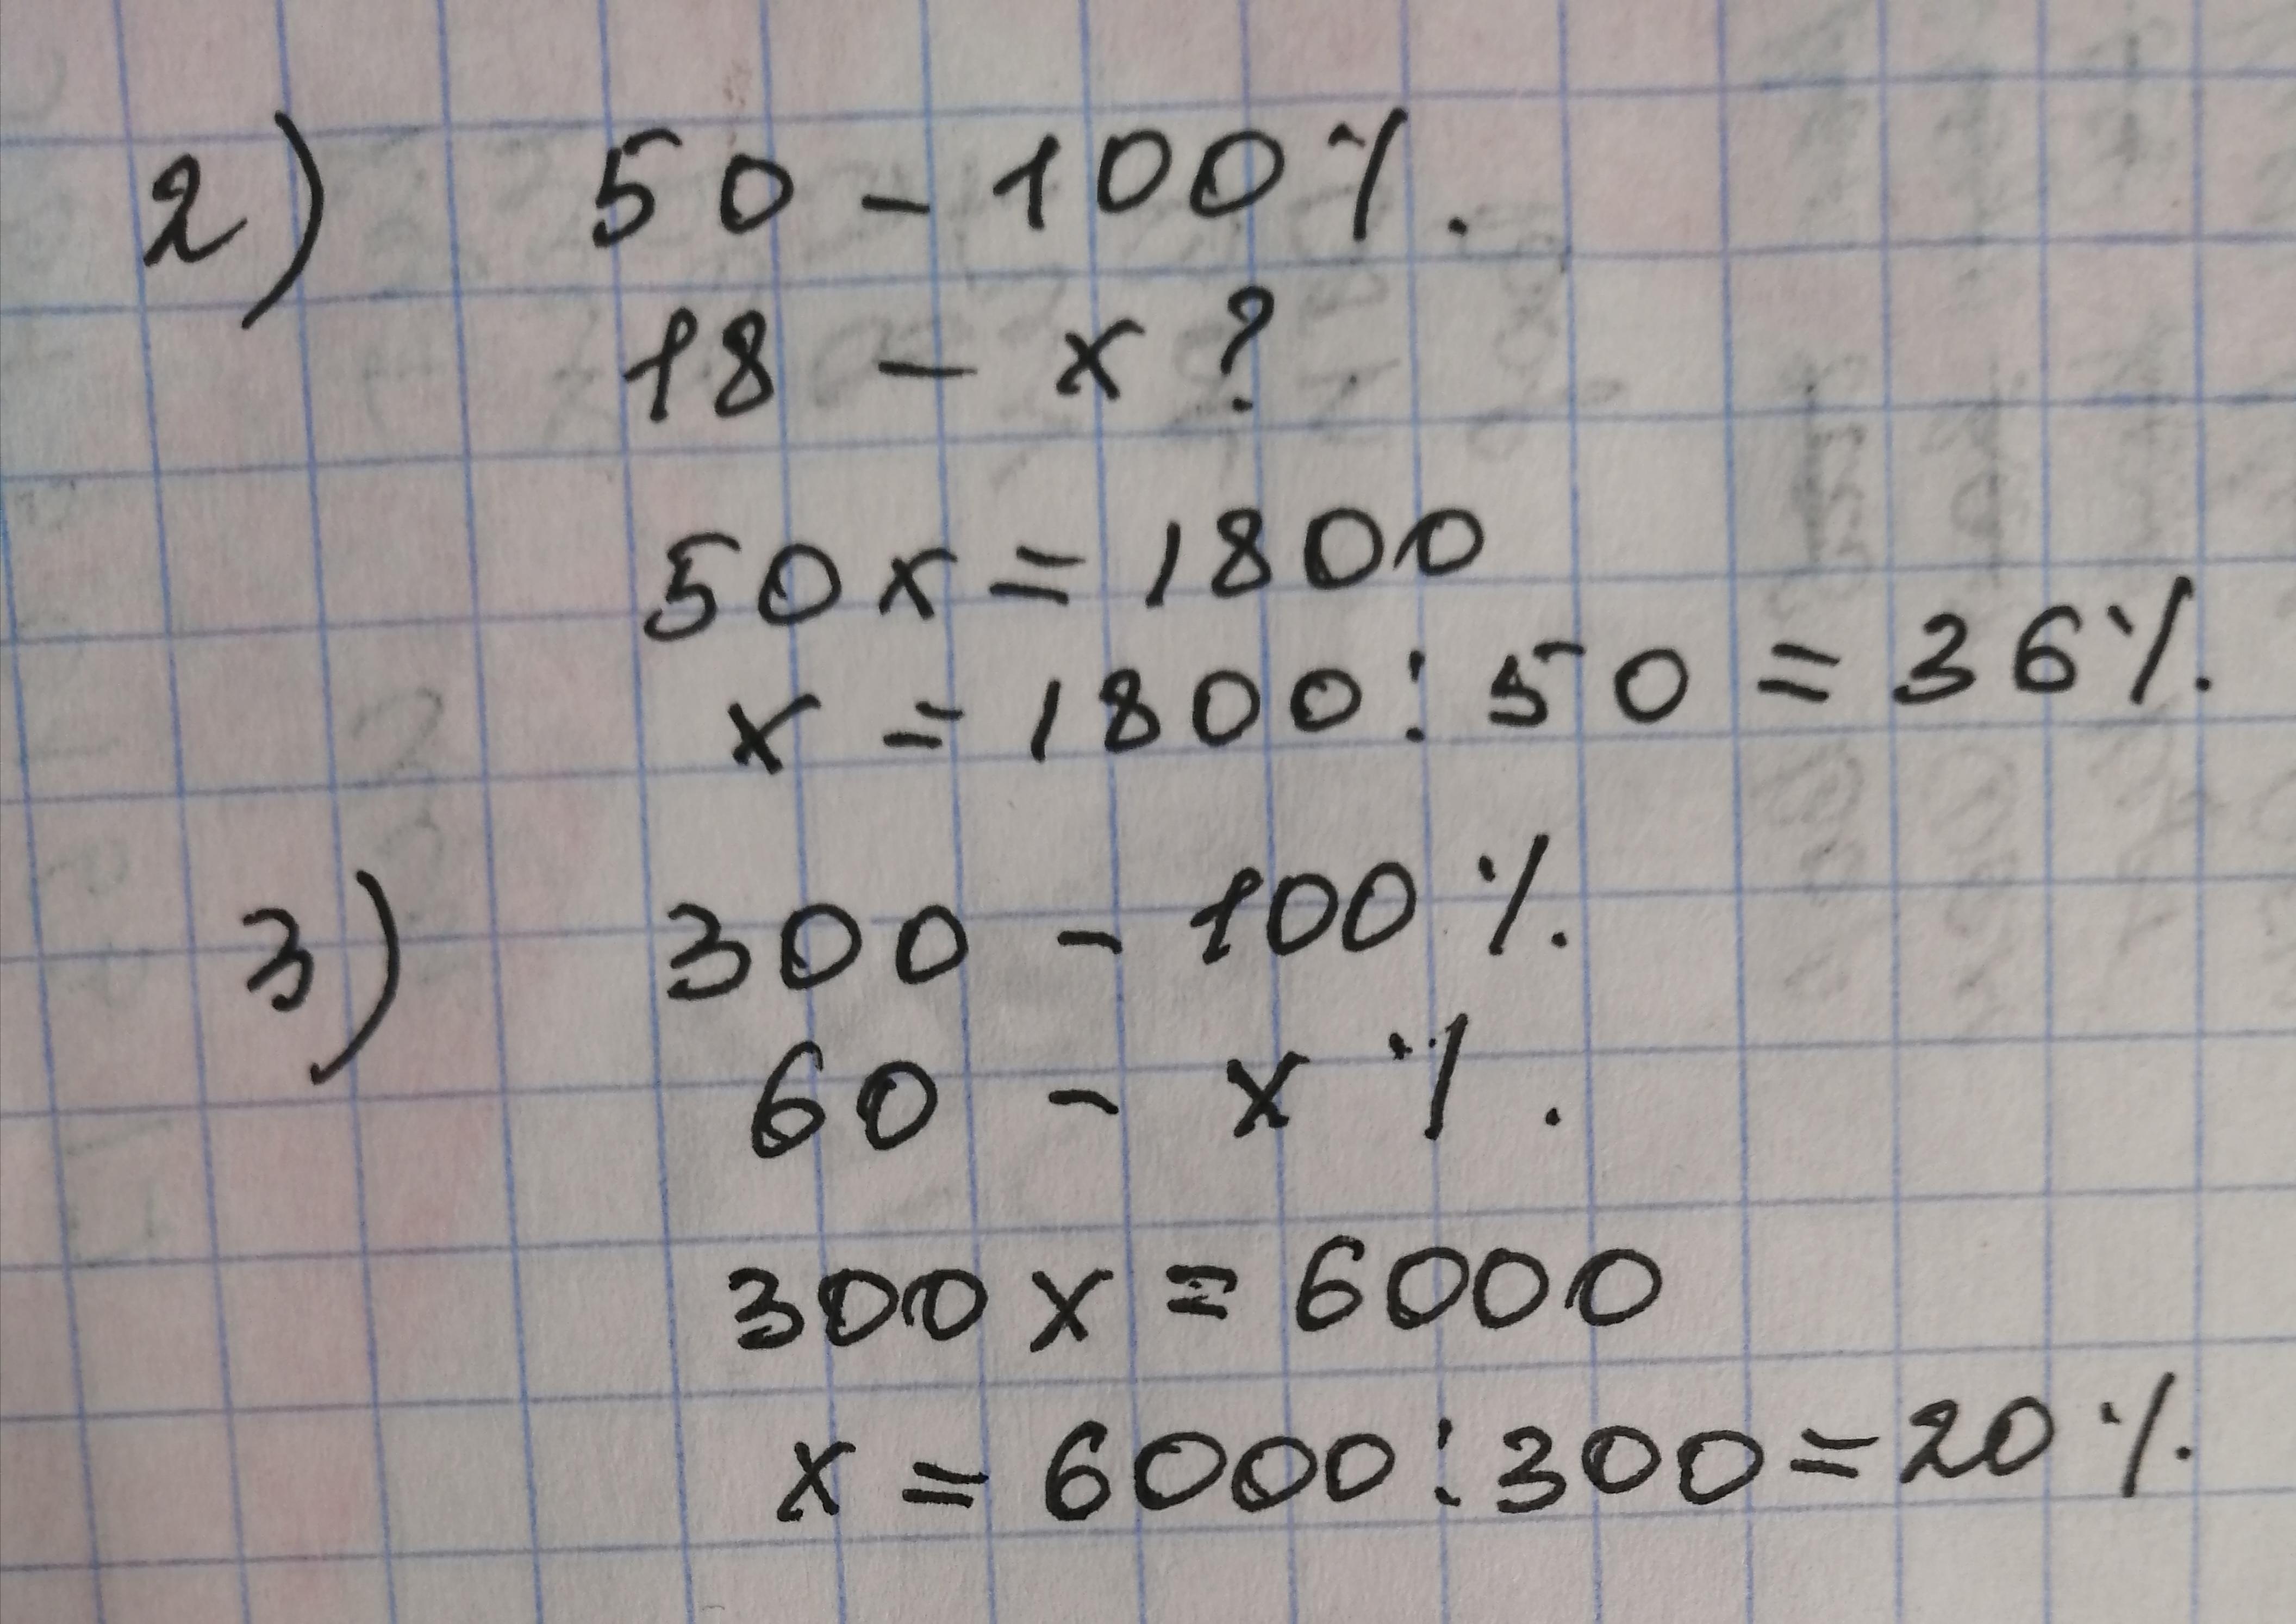 2) 50 - 100%.
18 - x ?
50x = 1800
x = 1800 : 50 = 36%.
3) 300 - 100%.
60 - x %.
300x = 6000
x = 6000 : 300 = 20%.